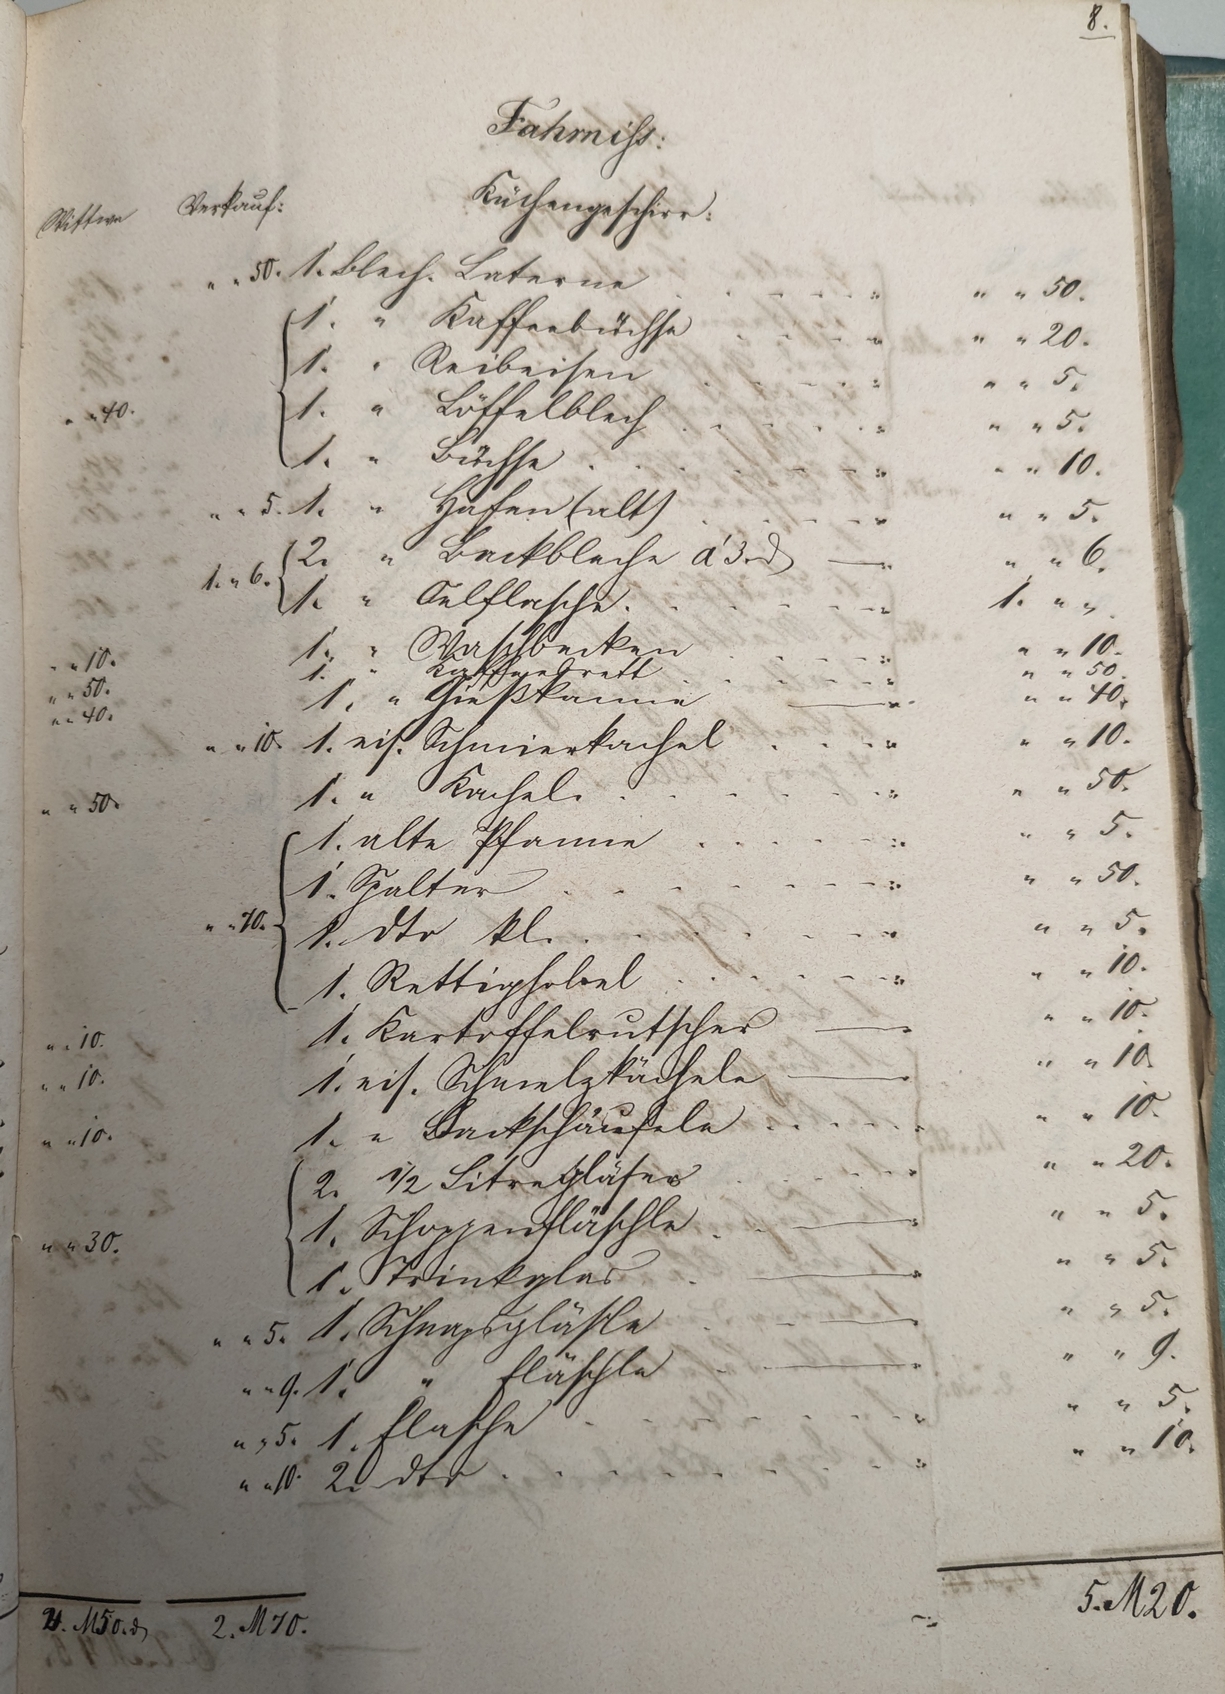 8.
Fahrniß:
Wittwe Verkauf: Küchengeschirr:
" " 50. 1. Blech. Laterne " " 50.
1. " Kaffeebüchse " " 20.
1. " Reibeisen " " 5.
" " 40. 1. " Löffelblech " " 5.
1. " Büchse " " 10.
" " 5. 1. " Hafen (alt) " " 5.
2. " Backbleche à 3. d " " 6.
1. " 6. 1. " Oelflasche 1. " "
" " 10. 1. " Waschbecken " " 10.
" " 50. 1. " Kaffeebrett " " 50.
" " 40. 1. " Gießkanne " " 40.
" " 10. 1. eis. Schmierkachel " " 10.
" " 50. 1. " Kachel " " 50.
1. alte Pfanne " " 5.
1. Spalter " " 50.
" " 70. 1. dto kl. " " 5.
1. Rettighobel " " 10.
" " 10. 1. Kartoffelrutscher " " 10.
" " 10. 1. eis. Schmelzkächele " " 10.
" " 10. 1. " Backschäufele " " 10.
2. 1/2 Litregläser " " 20.
" " 30. 1. Schoppenfläschle " " 5.
1. Trinkglas " " 5.
" " 5. 1. Schnapsgläsle " " 5.
" " 9. 1. " fläschle " " 9.
" " 5. 1. Flasche " " 5.
" " 10. 2. dto " " 10.
2. M 50. d 2. M 70. 5. M 20.